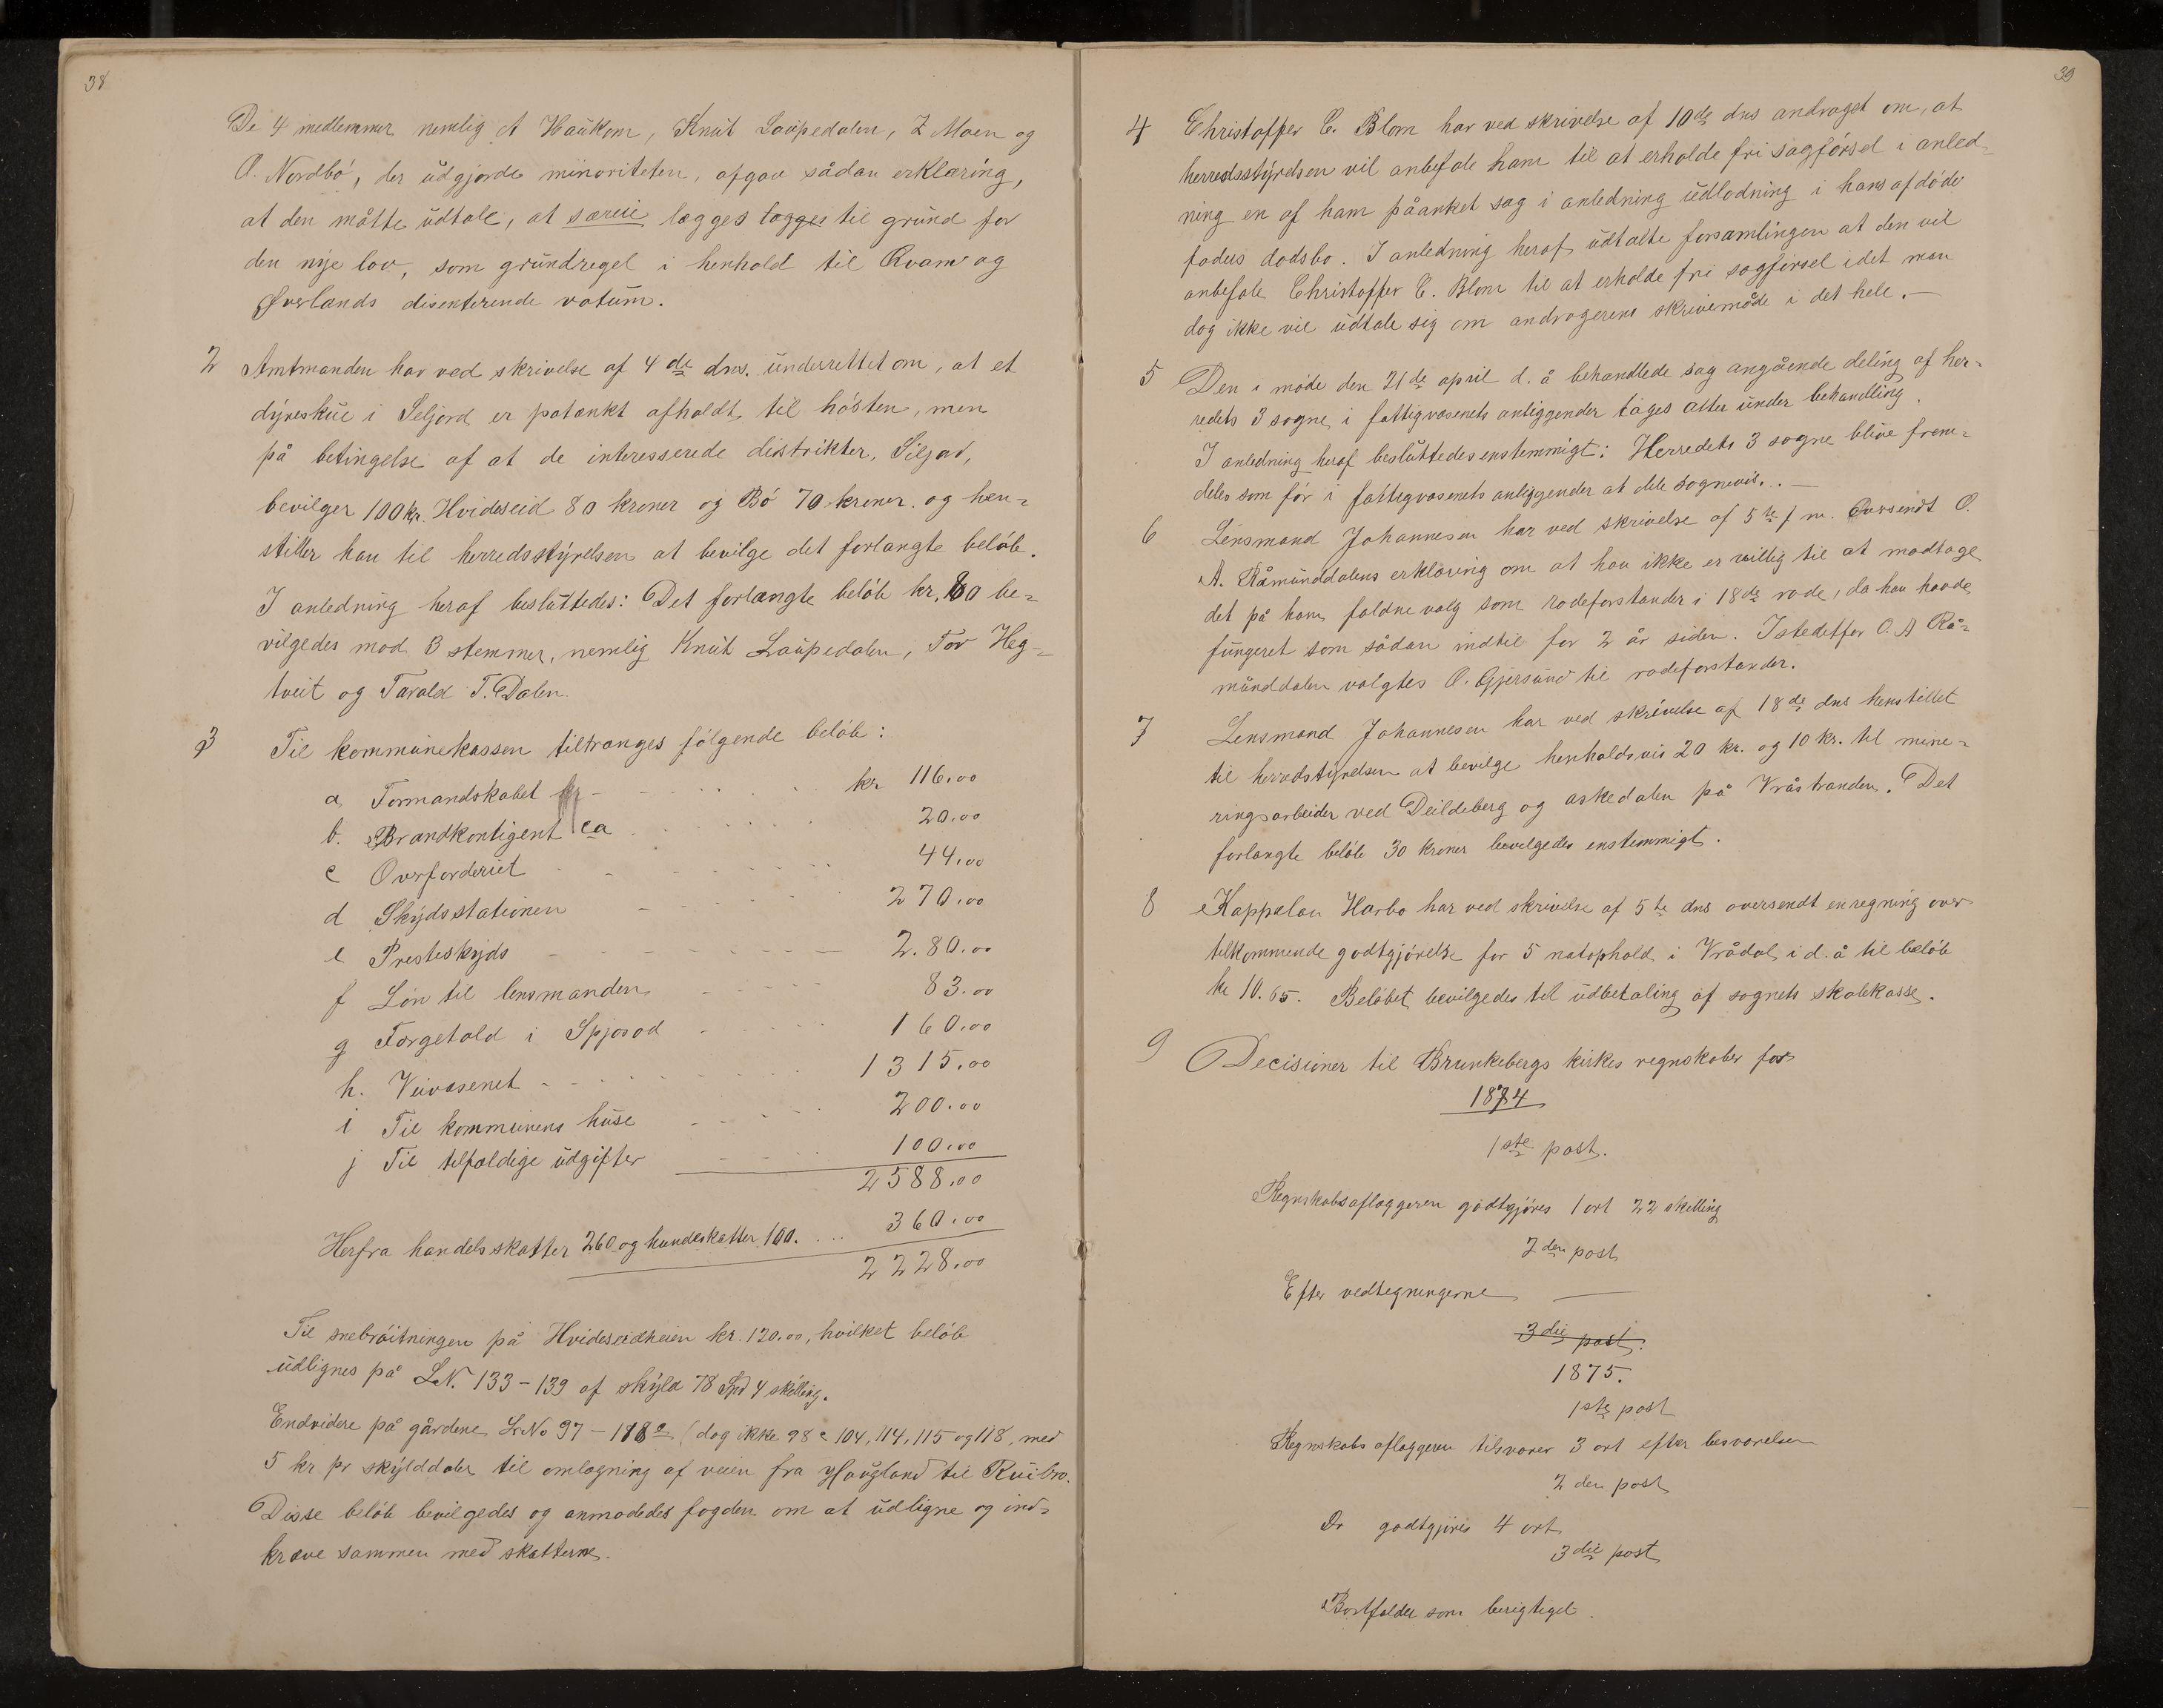 38
De 4 medlemmer nemlig A Haukom, Knut Laupedalen, Z Moen og
O. Nordbö, der udgjorde minoriteten, afgav sådan erklæring,
at den måtte udtale, at særeie lægges lægges til grund for
den nye lov, som grundregel i henhold til Qvam og
Øverlands disenterende votum.
2 Amtmanden har ved skrivelse af 4de dns. underrettet om, at et
dyreskue i Seljord er patænkt afholdt til hösten, men
på betingelse af at de interesserede distrikter, Siljord,
bevilger 100 kr. Hvideseid 80 kroner og Bö 70 kroner. og hen-
stiller han til herredsstyrelsen at bevilge det forlangte belöb.
I anledning heraf besluttedes: Det forlangte belöb kr. 80 be-
vilgedes mod 3 stemmer, nemlig Knut Laupedalen, Tor Heg-
tveit og Tarald T. Dalen.
3 Til kommunekassen tiltrænges fölgende belöb:
a Formandskabet kr - - - - kr 116.00
b. Brandkontigent ca - - - - 20.00
c Overforderiet - - - - 44.00
d Skydsstationen - - - - 270.00
e Presteskyds - - - - 2.80.00
f Lön til lensmanden - - - - 83.00
g Færgetold i Spjosod - - - - 160.00
h. Veivæsenet - - - - 1315.00
i Til kommunens huse - - - - 200.00
j Til tilfældige udgifter - - - - 100.00
2588.00
Herfra handelsskatter 260 og hundeskatter 100. ... 360.00
2228.00
Til snebröitningen på Hvideseidheien kr. 120.00, hvilket belöb
udlignes på L.N. 133-139 af skyld 78 Spd 4 skilling.
Endvidere på gårdene L.No 97-118a (dog ikke 98c 104, 114, 115 og 118, med
5 kr pr skylddaler til omlægning af veien fra Haugland til Ruibro.
Disse belöb bevilgedes og anmodedes fogden om at udligne og ind-
kræve sammen med skatterne.
39
4 Christoffer C. Blom har ved skrivelse af 10de dns andraget om, at
herredsstyrelsen vil anbefale ham til at erholde fri sagförsel i anled-
ning en af ham påanket sag i anledning udlodning i hans afdöde
faders dödsbo. I anledning heraf udtalte forsamlingen at den vil
anbefale Christoffer C. Blom til at erholde fri sagförsel idet man
dog ikke vil udtale sig om andragerens skrivemåde i det hele. —
5 Den i möde den 21de april d. å behandlede sag angående deling af her-
redets 3 sogne i fattigvæsenets anliggender tages atter under behandling.
I anledning heraf besluttedes enstemmigt: Herredets 3 sogne blive frem-
deles som för i fattigvæsenets anliggender at dele sognevis. . —
6 Lensmand Johannesen har ved skrivelse af 5te f m. oversendt O.
A. Råmunddalens erklæring om at han ikke er villig til at modtage
det på ham faldne valg som rodeforstander i 18de rode, da han havde
fungeret som sådan indtil for 2 år siden. Istedetfor O. A Rå-
munddalen valgtes O. Gjersund til rodeforstander.
7 Lensmand Johannesen har ved skrivelse af 18de dns henstillet
til herredstyrelsen at bevilge henholdsvis 20 kr. og 10 kr. til mine-
ringsarbeider ved Deildeberg og askedalen på Vråstranden. Det
forlangte belöb 30 kroner bevilgedes enstemmigt.
8 Kappelan Harbo har ved skrivelse af 5te dns oversendt en regning over
tilkommende godtgjörelse for 5 natophold i Vrådal i d. å til belöb
kr 10.65. Belöbet bevilgedes til udbetaling af sognets skolekasse.
9 Decisioner til Brunkebergs kirkes regnskaber for
1874
1ste post.
Regnskabsaflæggeren godtgjöres 1 ort 22 skilling
2den post
Efter vedtegningerne —
3die post.
1875.
1ste post
Regnskabsaflæggeren tilsvarer 3 ort efter besvarelsen
2den post
Do godtgjöres 4 ort
3die post
Bortfalder som berigtiget.